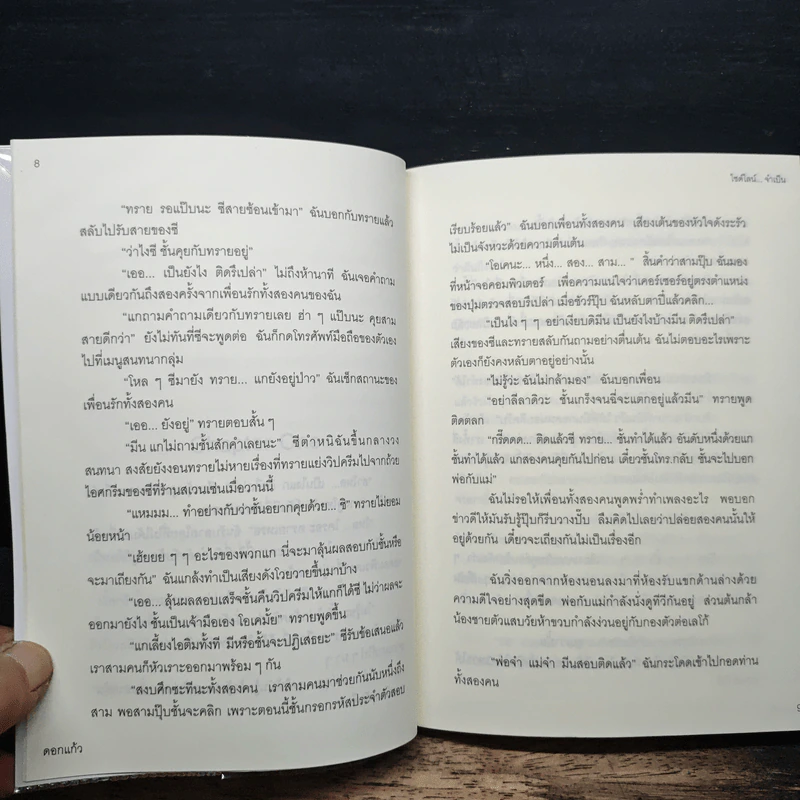 8
"ทราย รอแป๊บนะ ซีสายซ้อนเข้ามา" ฉันบอกกับทรายแล้ว
สลับไปรับสายของซี
"ว่าไงซี ชั้นคุยกับทรายอยู่"
"เออ... เป็นยังไง ติดรึเปล่า" ไม่ถึงห้านาที ฉันเจอคำถาม
แบบเดียวกันถึงสองครั้งจากเพื่อนรักทั้งสองคนของฉัน
"แกถามคำถามเดียวกับทรายเลย ฮ่า ๆ แป๊บนะ คุยสาม
สายดีกว่า" ยังไม่ทันที่ซีจะพูดต่อ ฉันก็กดโทรศัพท์มือถือของตัวเอง
ไปที่เมนูสนทนากลุ่ม
"โหล ๆ ซีมายัง ทราย... แกยังอยู่ป่าว" ฉันเช็กสถานะของ
เพื่อนรักทั้งสองคน
"เออ... ยังอยู่" ทรายตอบสั้น ๆ
"มีน แกไม่ถามชั้นสักคำเลยนะ" ซีตำหนิฉันขึ้นกลางวง
สนทนา สงสัยยังงอนทรายไม่หายเรื่องที่ทรายแย่งวิปครีมไปจากถ้วย
ไอศกรีมของซีที่ร้านสเวนเซ่นเมื่อวานนี้
"แหมมม... ทำอย่างกับว่าชั้นอยากคุยด้วย... ชิ" ทรายไม่ยอม
น้อยหน้า
"เฮ้ยยย ๆ ๆ อะไรของพวกแก นี่จะมาลุ้นผลสอบกับชั้นหรือ
จะมาเถียงกัน" ฉันแกล้งทำเป็นเสียงดังโวยวายขึ้นมาบ้าง
"เออ... ลุ้นผลสอบเสร็จชั้นคืนวิปครีมให้แกก็ได้ซี ไม่ว่าผลจะ
ออกมายังไง ชั้นเป็นเจ้ามือเอง โอเคมั้ย" ทรายพูดขึ้น
"แกเลี้ยงไอติมทั้งที มีหรือชั้นจะปฏิเสธยะ" ซีรับข้อเสนอแล้ว
เราสามคนก็หัวเราะออกมาพร้อม ๆ กัน
"สงบศึกซะทีนะทั้งสองคน เราสามคนมาช่วยกันนับหนึ่งถึง
สาม พอสามปุ๊บชั้นจะคลิก เพราะตอนนี้ชั้นกรอกรหัสประจำตัวสอบ
ดอกแก้ว
ไซด์ไลน์... จำเป็น
เรียบร้อยแล้ว" ฉันบอกเพื่อนทั้งสองคน เสียงเต้นของหัวใจดังระรัว
ไม่เป็นจังหวะด้วยความตื่นเต้น
"โอเคนะ... หนึ่ง... สอง... สาม... " สิ้นคำว่าสามปุ๊บ ฉันมอง
ที่หน้าจอคอมพิวเตอร์ เพื่อความแน่ใจว่าเคอร์เซอร์อยู่ตรงตำแหน่ง
ของปุ่มตรวจสอบรึเปล่า เมื่อชัวร์ปุ๊บ ฉันหลับตาปี๋แล้วคลิก...
"เป็นไง ๆ ๆ อย่าเงียบดิมีน เป็นยังไงบ้างมีน ติดรึเปล่า"
เสียงของซีและทรายสลับกันถามอย่างตื่นเต้น ฉันไม่ตอบอะไรเพราะ
ตัวเองก็ยังคงหลับตาอยู่อย่างนั้น
"ไม่รู้ว่ะ ฉันไม่กล้ามอง" ฉันบอกเพื่อน
"อย่าลีลาดิวะ ชั้นเกร็งจนฉี่จะแตกอยู่แล้วมีน" ทรายพูด
ติดตลก
"กรี๊ดดด... ติดแล้วซี ทราย... ชั้นทำได้แล้ว อันดับหนึ่งด้วยแก
ชั้นทำได้แล้ว แกสองคนคุยกันไปก่อน เดี๋ยวชั้นโทร.กลับ ชั้นจะไปบอก
พ่อกับแม่"
ฉันไม่รอให้เพื่อนทั้งสองคนพูดพร่ำทำเพลงอะไร พอบอก
ข่าวดีให้มันรับรู้ปุ๊บก็รีบวางปั๊บ ลืมคิดไปเลยว่าปล่อยสองคนนั้นให้
อยู่ด้วยกัน เดี๋ยวจะเถียงกันไม่เป็นเรื่องอีก
ฉันวิ่งออกจากห้องนอนลงมาที่ห้องรับแขกด้านล่างด้วย
ความดีใจอย่างสุดขีด พ่อกับแม่กำลังนั่งดูทีวีกันอยู่ ส่วนต้นกล้า
น้องชายตัวแสบวัยห้าขวบกำลังง่วนอยู่กับกองตัวต่อเลโก้
"พ่อจ๋า แม่จ๋า มีนสอบติดแล้ว" ฉันกระโดดเข้าไปกอดท่าน
ทั้งสองคน
9